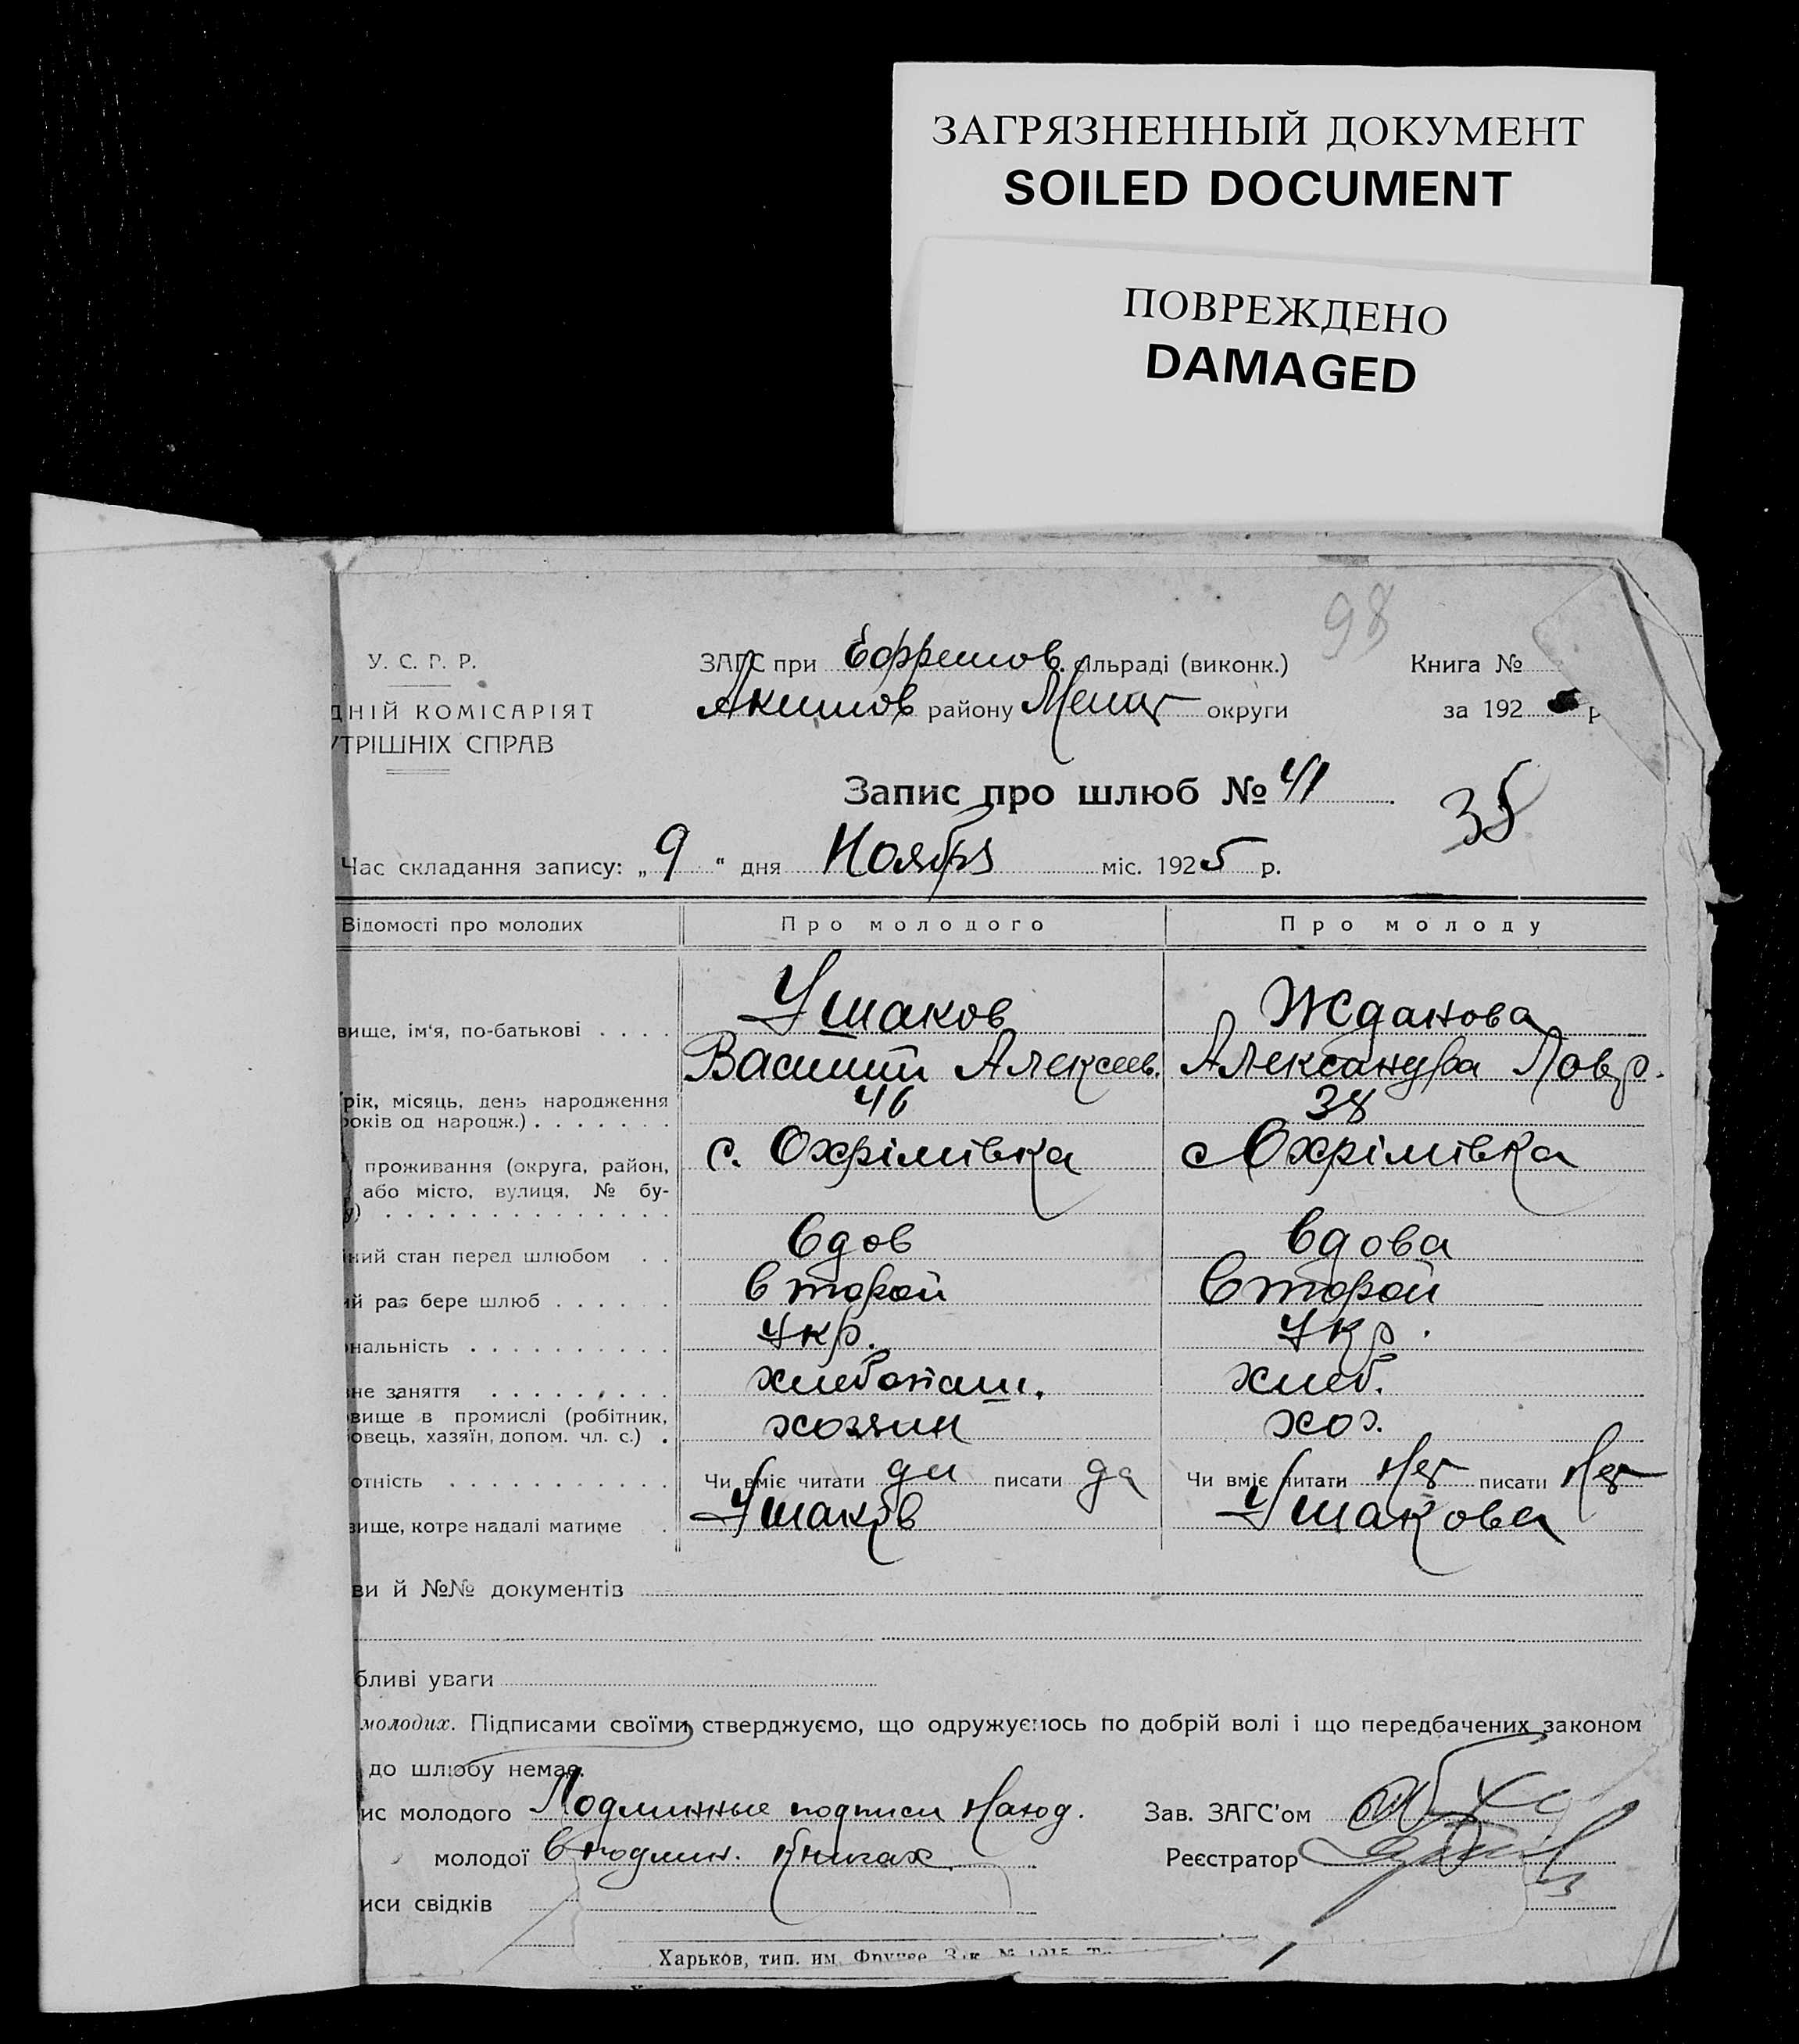 ЗАГРЯЗНЕННЫЙ ДОКУМЕНТ
SOILED DOCUMENT
ПОВРЕЖДЕНО
DAMAGED
98
У. С. Р. Р.
ЗАГС при Ефремов. сільраді (виконк.)
Книга №
ДНІЙ КОМІСАРІЯТ
Акимов району Меліт округи
за 192 р
УТРІШНІХ СПРАВ
Запис про шлюб № 41
38
Час складання запису: „ 9 “ дня Ноября міс. 1925 р.
Відомості про молодих Про молодого Про молоду
Ушаков Жданова
вище, ім'я, по-батькові . . . .
Василий Алексеев. Александра Лавр.
рік, місяць, день народження 46 38
років од народж.) . . . . . . .
проживання (округа, район, с. Охрімівка с Охрімівка
або місто, вулиця, № бу-
у) . . . . . . . . . . . . . . .
ний стан перед шлюбом . . вдов вдова
ий раз бере шлюб . . . . . . второй второй
нальність . . . . . . . . . . Укр. Укр.
не заняття . . . . . . . . . хлебопаш. хлеб.
вище в промислі (робітник, хозяин хоз.
овець, хазяїн, допом. чл. с.) .
отність . . . . . . . . . . . Чи вміє читати да писати да Чи вміє читати Нет писати Нет
вище, котре надалі матиме . Ушаков Ушакова
ви й №№ документів
бливі уваги
молодих. Підписами своїми стверджуємо, що одружуємось по добрій волі і що передбачених законом
до шлюбу немає.
ис молодого Подлинные подписи наход. Зав. ЗАГС'ом
молодої в подлин. Книгах Реєстратор
иси свідків
Харьков, тип. им. Фрунзе